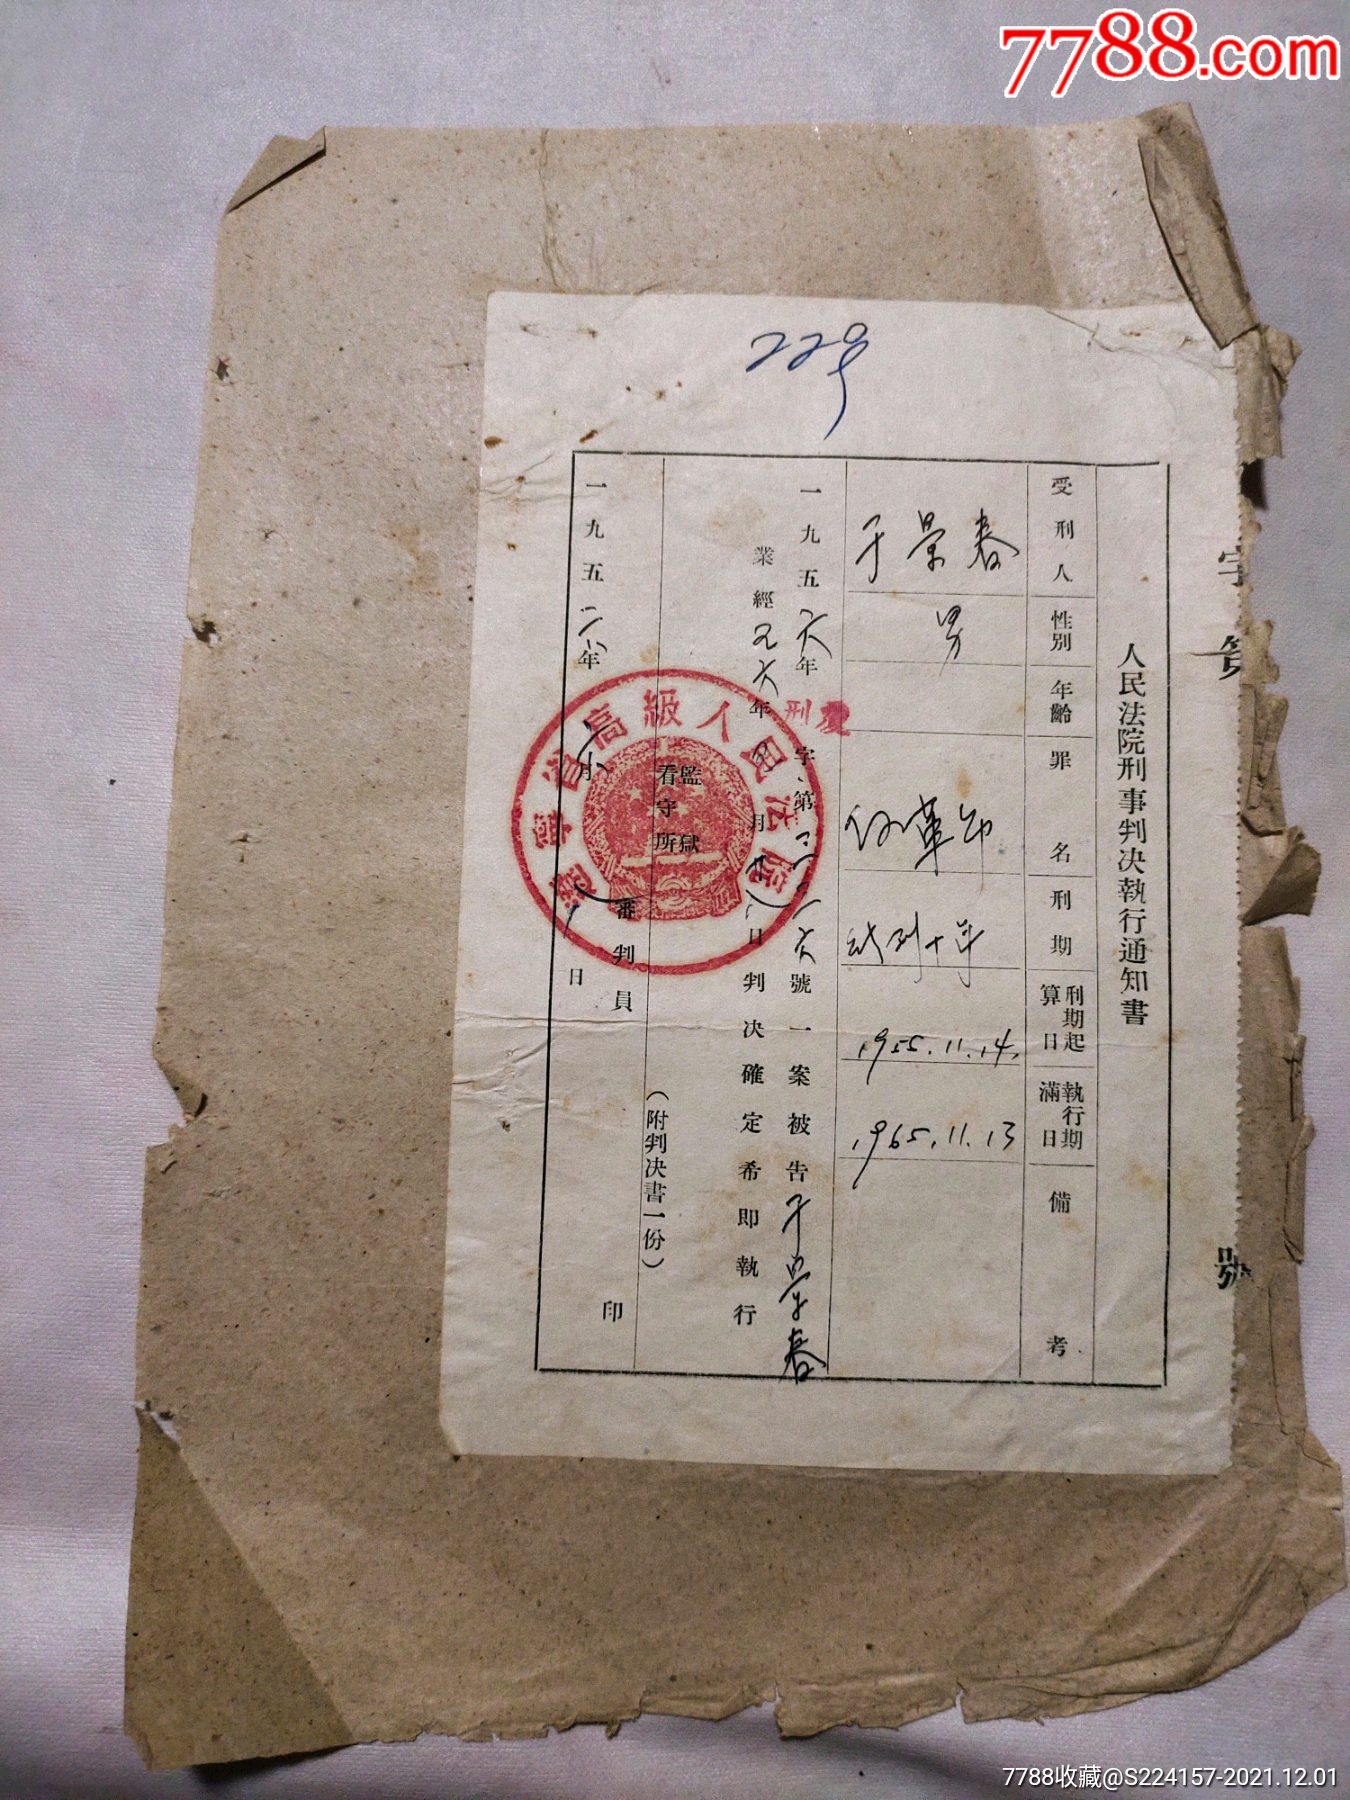 7788.com
22号
字 第 號
人民法院刑事判決執行通知書
受刑人 性別 年齡 罪名 刑期 刑期起算日 執行期滿日 備考
于景春 男 反革命 徒刑十年 1955.11.14. 1965.11.13
一九五六年 刑 字第 號一案被告于景春
業經五六年 月 日判決確定希即執行
監獄
看守所
(附判決書一份)
審判員 印
一九五 年 月 日
遼寧省高級人民法院
7788收藏@S224157-2021.12.01